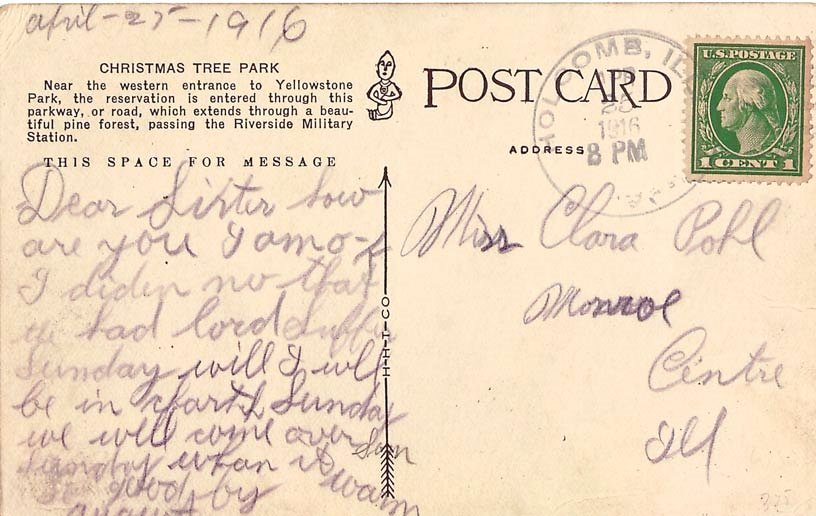 april-25-1916
CHRISTMAS TREE PARK
Near the western entrance to Yellowstone
Park, the reservation is entered through this
parkway, or road, which extends through a beau-
tiful pine forest, passing the Riverside Military
Station.
THIS SPACE FOR MESSAGE
Dear Sister how
are you I am o-k
I diden no that
we had lord suffer
Sunday will I will
be in Sunday
we will come over Som
Sunday whan it warm
so good by
august
H-H-T-CO
POST CARD
ADDRESS
HOLCOMB, ILL
25
1916
8 PM
U.S. POSTAGE
1 CENT 1
Miss Clara Pohl
Monroe
Centre
Ill